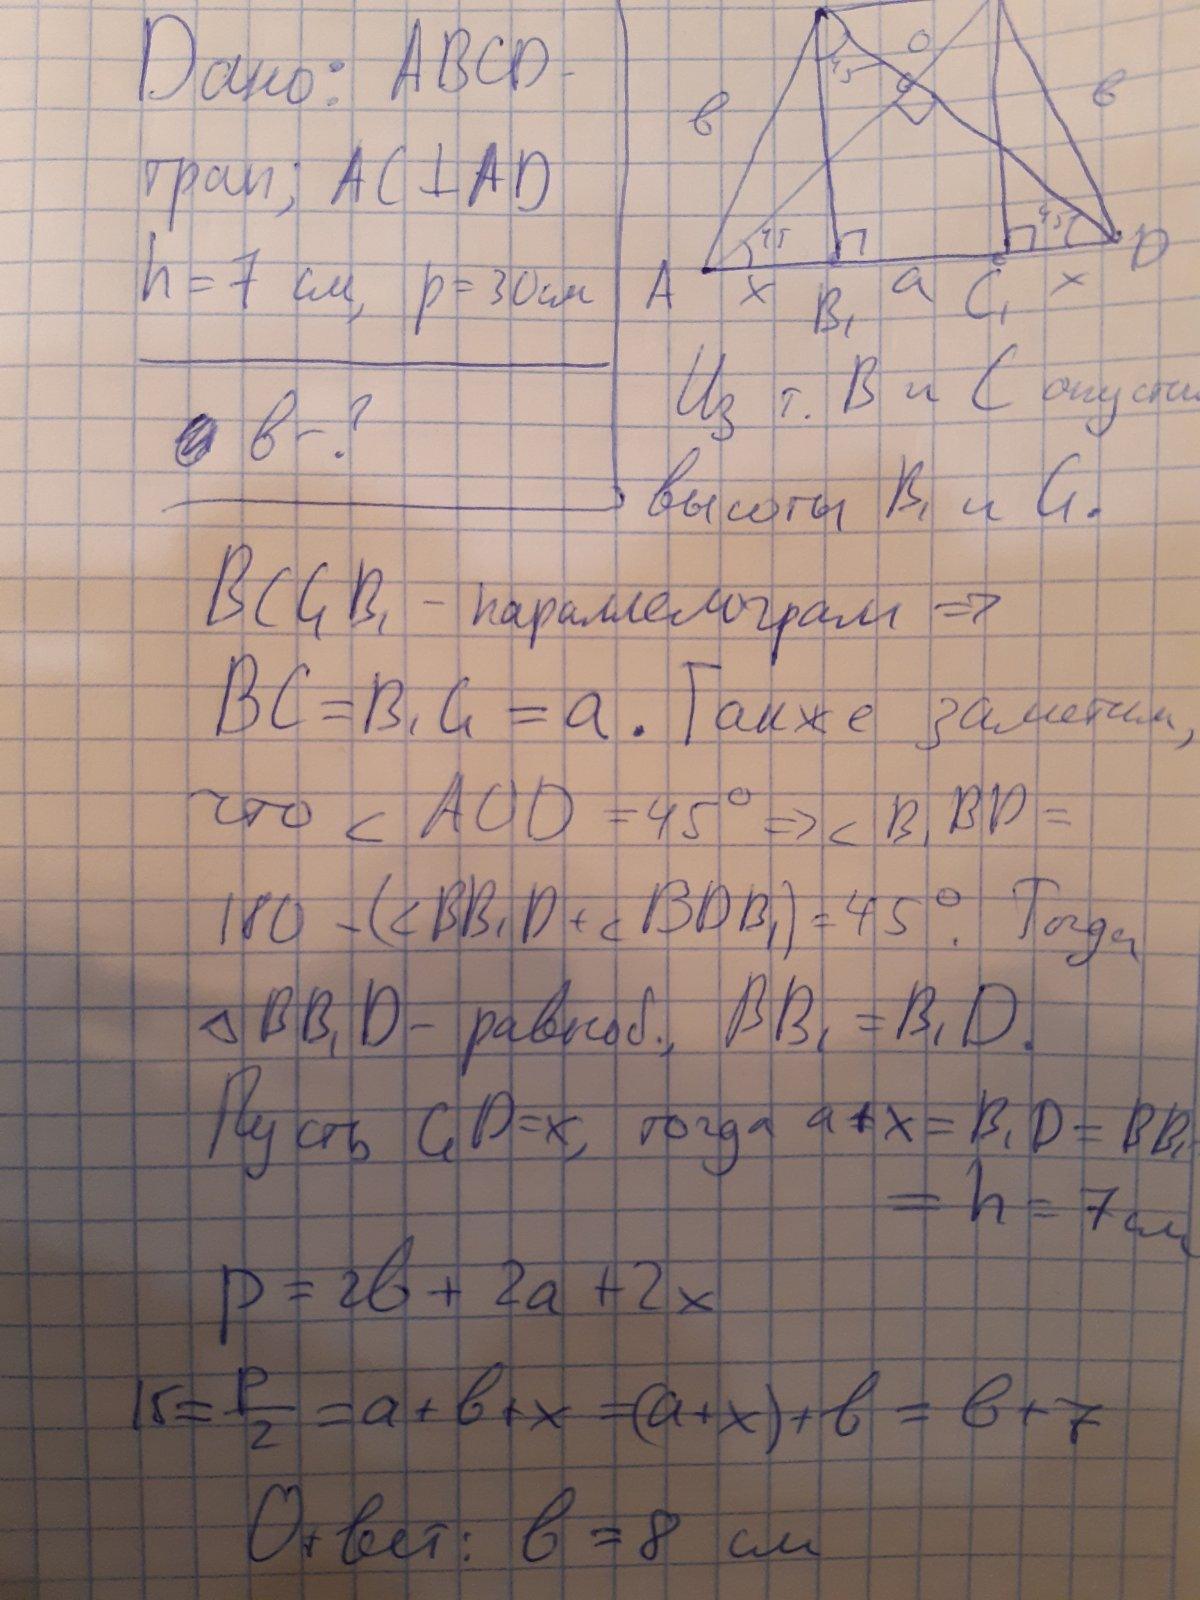 Дано: ABCD-
трап; AC⊥AD
h=7 см, p=30см
в-?
в
45
O
в
A
45
45
D
x
B₁
a
C₁
x
Из т. B и C опустим
высоты B₁ и C₁.
BCC₁B₁ - параллелограм =>
BC=B₁C₁=a. Также заметим,
что < AOD =45° => < B₁BD =
180 -(<BB₁D+<BDB₁)=45°. Тогда
△BB₁D- равноб., BB₁=B₁D.
Пусть C₁D=x, тогда a+x=B₁D=BB₁
=h=7см
p=2в+2a+2x
15=p/2=a+в+x=(a+x)+в=в+7
Ответ: в=8 см